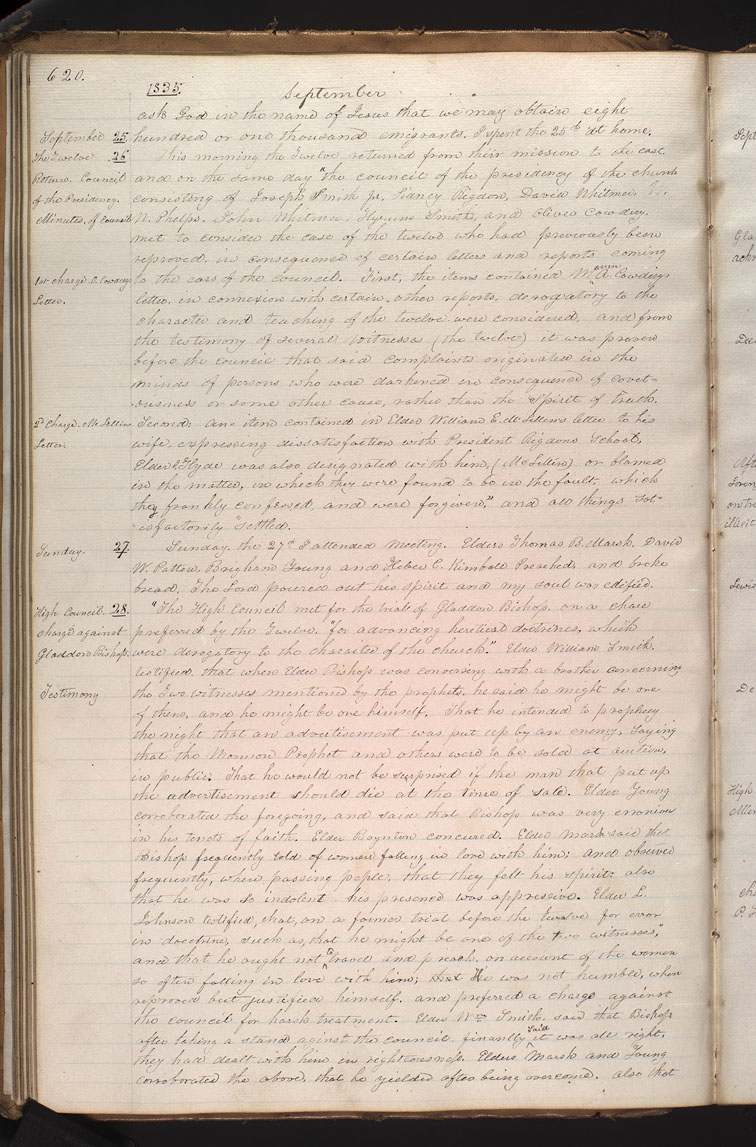 620.
1835.
September
ask God in the name of Jesus that we may obtain eight
September 25 hundred or one thousand emigrants. I spent the 25th at home,
The Twelve 26 This morning the Twelve returned from their mission to the east
Return. Council and on the same day "the council of the presidency of the church
of the Presidency. consisting of Joseph Smith Jr, Sidney Rigdon, David Whitmer, W.
Minutes, of Council W. Phelps, John Whitmer, Hyrum Smith, and Oliver Cowdery.
met to consider the case of the twelve who had previously been
reproved in consequence of certain letters and reports coming
1st charge. O. Cowdery's to the ears of the council. First, the items contained Warren A. Cowdery's
Letter. letter, in connexion with certain other reports, derogatory to the
character and teaching of the twelve were considered, and from
the testimony of several witnesses (the twelve) it was proven
before the council that said complaints originated in the
minds of persons who were darkened in consequence of covet-
ousness or some other cause, rather than the spirit of truth.
2d Charge. McLellins Second: One item contained in Elder William E. McLellins letter to his
Letter. wife, expressing dissatisfaction with President Rigdons School.
Elder O Hyde was also designated with him, (McLellin) or blamed
in the matter, in which they were found to be in the fault, which
they frankly confessed, and were forgiven." and all things sat-
isfactorily settled.
Sunday. 27. Sunday the 27th I attended meeting. Elders Thomas B. Marsh, David
W. Patten, Brigham Young and Heber C. Kimball Preached and broke
bread. The Lord poured out his spirit and my soul was edified.
High Council. 28. "The High Council met for the trial of Gladden Bishop, on a charge
charge against preferred by the Twelve, "for advancing heretical doctrines, which
Gladden Bishop. were derogatory to the character of the church." Elder William Smith.
testified, that when Elder Bishop was conversing with a brother concerning
Testimony the Two witnesses mentioned by the prophets, he said he might be one
of them, and he might be one himself. That he intended to prophecy
the night that an advertisement was put up by an enemy, saying
that the Mormon Prophet and others were to be sold at auction,
in public. That he would not be surprised if the man that put up
the advertisement should die at the time of sale. Elder Young
corroborated the foregoing, and said that Bishop was very erronious
in his tenets of faith. Elder Boynton concured. Elder Marsh said that
Bishop frequently told of women falling in love with him; and observed
frequently, when passing people, that they felt his spirit: also
that he was so indolent his presence was oppressive. Elder L.
Johnson testified, that, on a former trial before the Twelve for error
in doctrine, such as, that he might be one of the two witnesses,"
and that he ought not to travel and preach, on account of the women
so often falling in love with him; that He was not humble, when
reproved but justified himself, and preferred a charge against
the council for harsh treatment. Elder Wm Smith, said that Bishop
after taking a stand against the council, finanlly said it was all right,
they had dealt with him in righteousness. Elders Marsh and Young
corroborated the above, that he yielded after being overcome. also that
Sept
Lewis
High